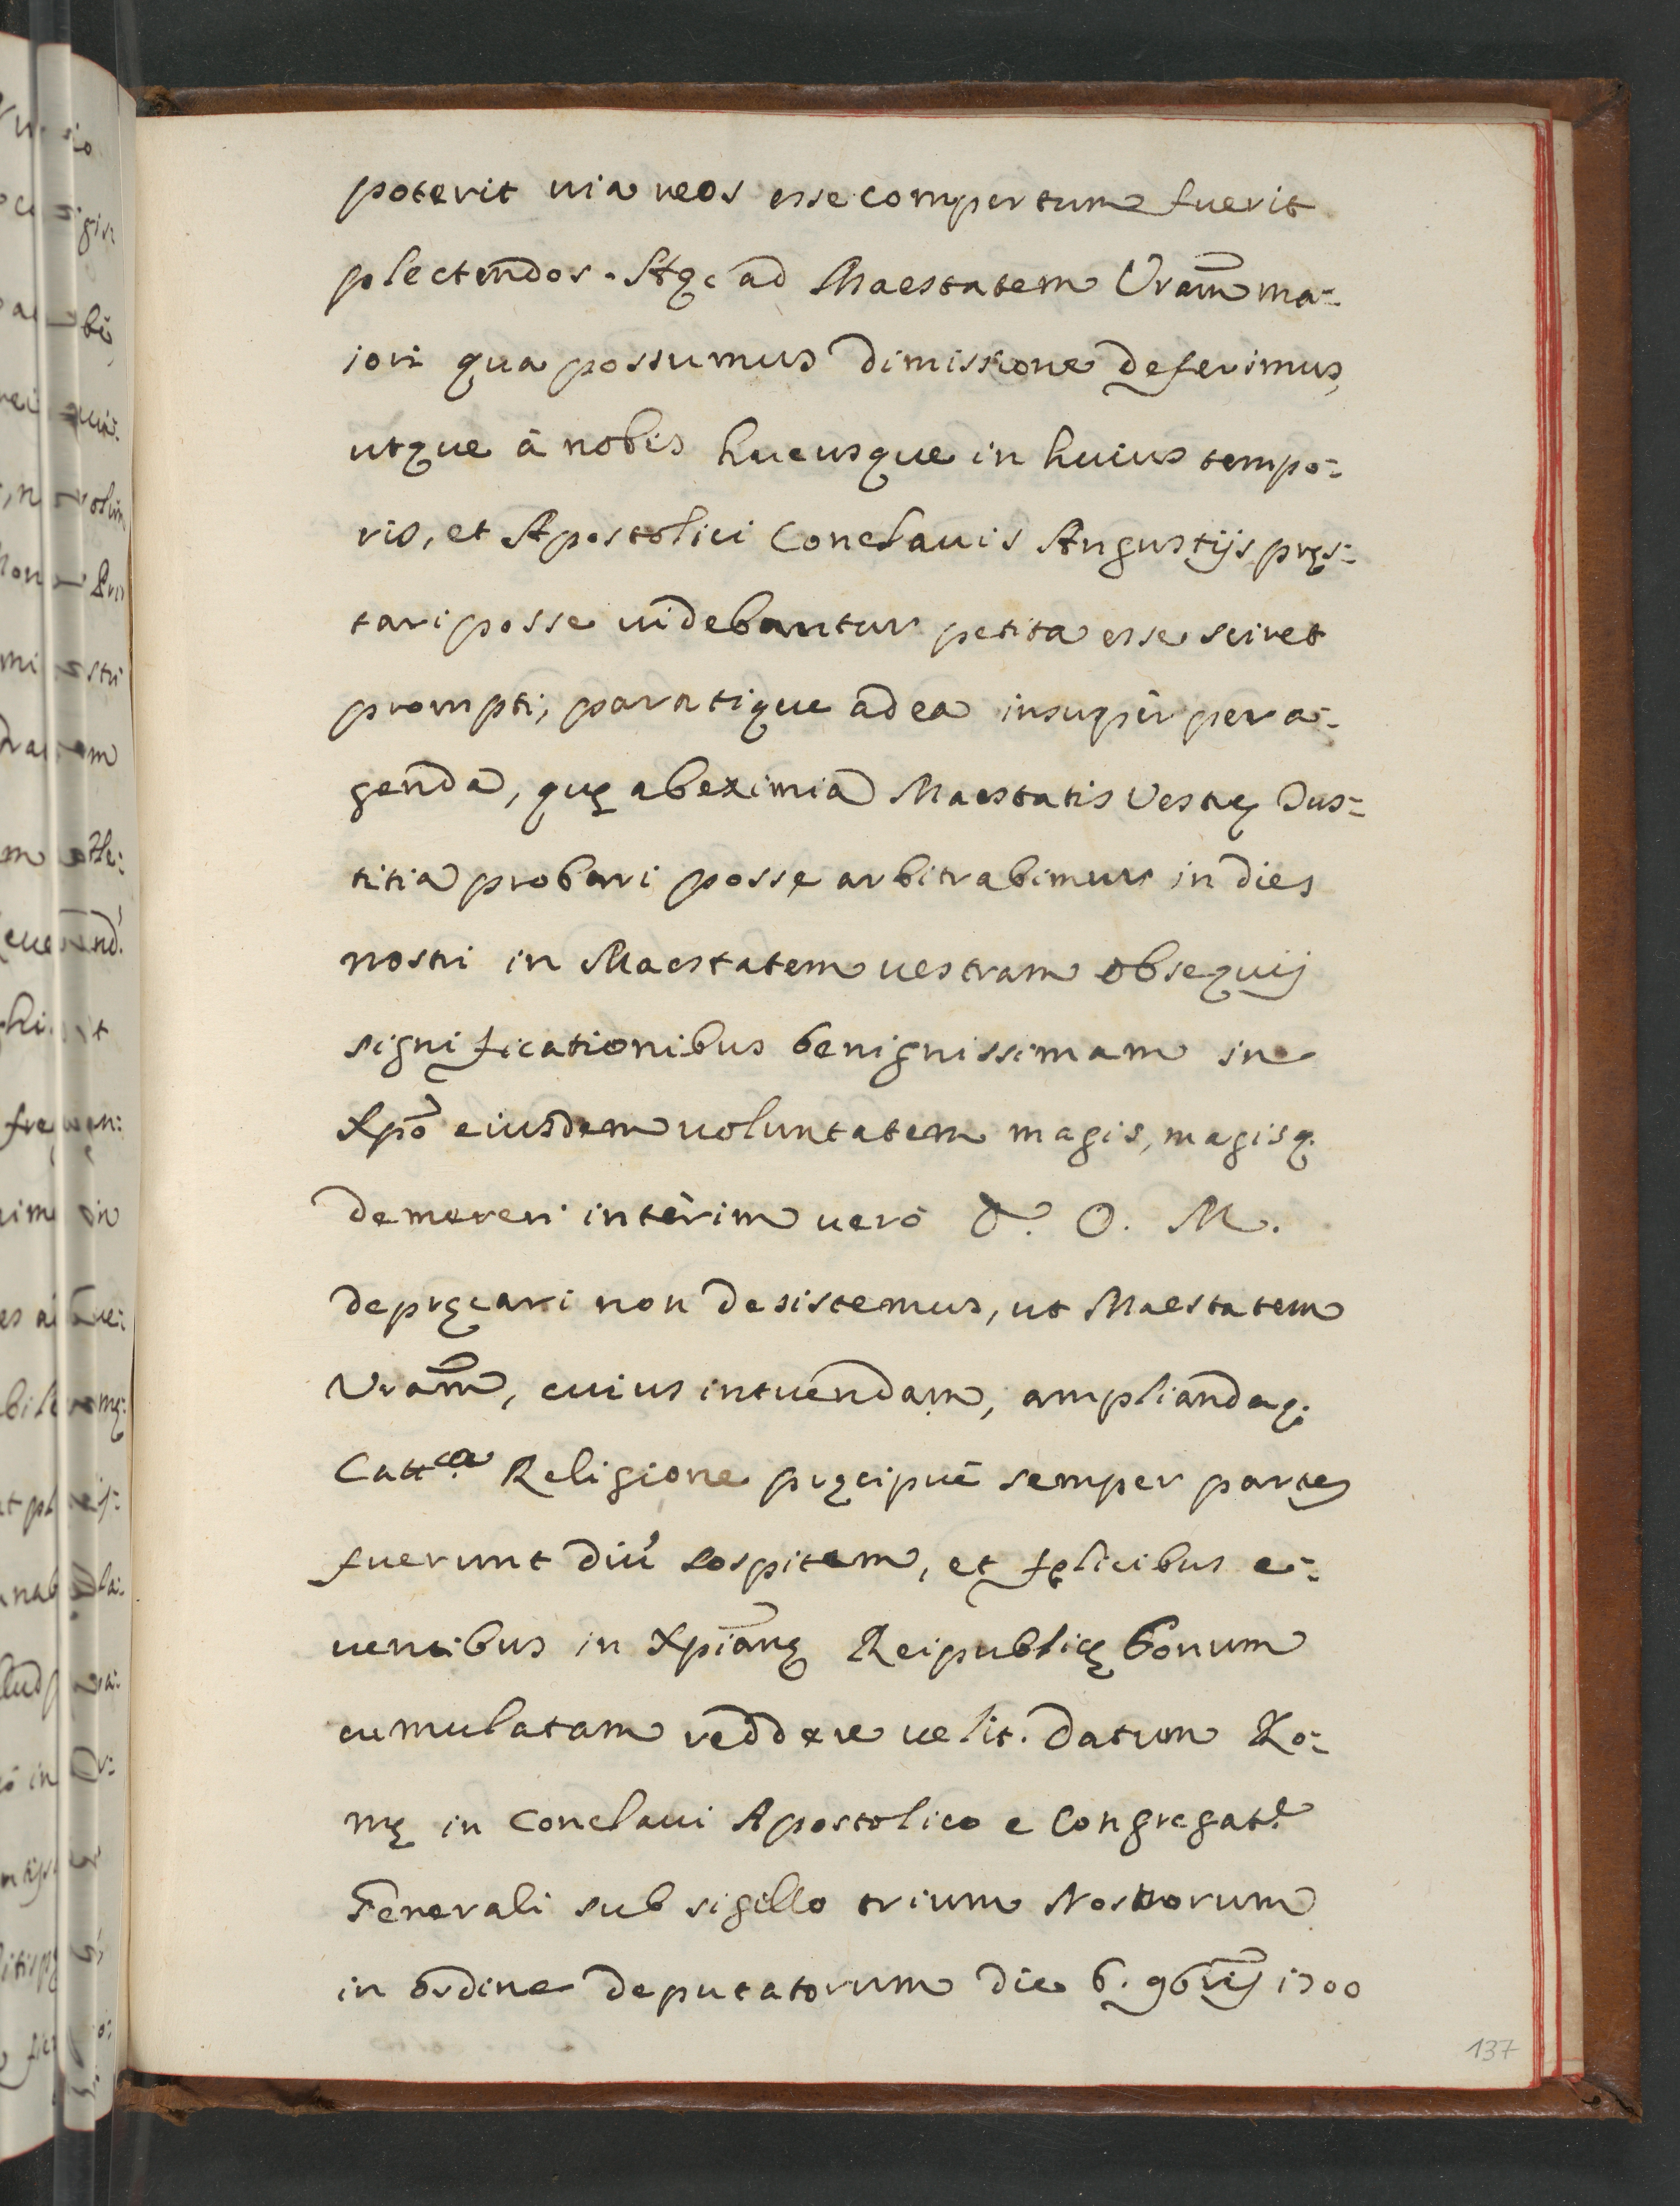 poterit uia reos esse compertum fuerit
plectendos. Atq; ad Maestatem Vram̃ ma:
iori qua possumus dimissione deferimus,
utque à nobis hucusque in huius tempo:
ris, et Apostolici Conclauis Angustijs pręs:
tari posse uidebantur petita esse sciret
prompti, paratique ad ea insupèr pera:
genda, quę ab eximia Maestatis Vestrę Jus:
titia probari posse arbitrabimur in dies
nostri in Maestatem uestram obsequij
significationibus benignissimam in
Xpõ eiusdem uoluntatem magis, magisq.
demereri intèrim uerò D. O. M.
depręcari non desistemus, ut Maestatem
Vram̃, cuius in tuendam, ampliandaq;
Catt.ca Religione pręcipuè semper partes
fuerunt diù sospitem, et fęlicibus e:
uentibus in Xpianę Reipublicę bonum
cumulatam reddere uelit. Datum Ro:
mę in Conclaui Apostolico e Congregat.e
Generali sub sigillo trium Nostrorum
in ordine deputatorum die 6. 9brij 1700
137